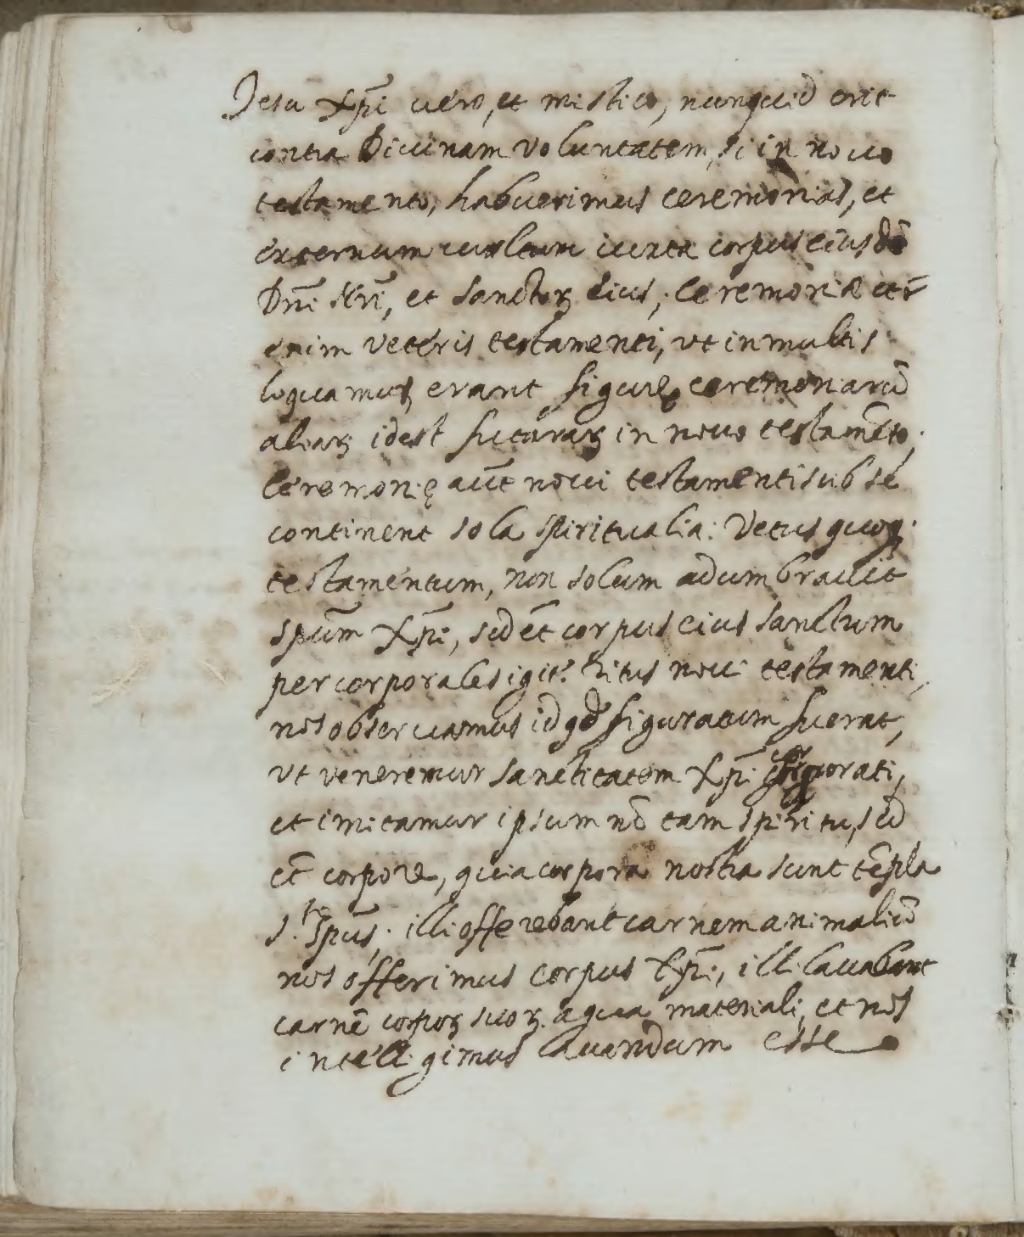 Jesu Xp̃i uero, et mistico, nunquid erit
contra Diuinam voluntatem, si in nouo
testamento, habuerimus ceremonias, et
externum cultum iuxta corpus eiusdē
Dñi Nr̃i, et sanctoꝝ eius, Ceremoniæ etē
enim veteris testamenti, vt in multis
loquamur, erant figurę ceremoniarū
aliarꝝ idest futurarꝝ in nouo testamēto,
Ceremonię aut̃ noui testamenti sub se
continent sola spiritualia: Vetus quoqꝫ
testamentum, non solum adumbrauit
Spũm Xp̃i, sed et̃ corpus eius sanctum
per corporales igit.' Ritus noui testamenti,
nos obseruamus id qđ figuratum fuerat,
vt veneremur sanctitatem Xp̃i corporati,
et imitamur ipsum nō tam spiritu, sed
et̃ corpore, quia corpora nostra sunt tēpla
S.te Spũs, illi offerebant carnem animaliū
nos offerimus corpus Xp̃i, illi lauabant
carnē corpoꝝ suoꝝ aqua materiali, et nos
intelligimus lauandum esse